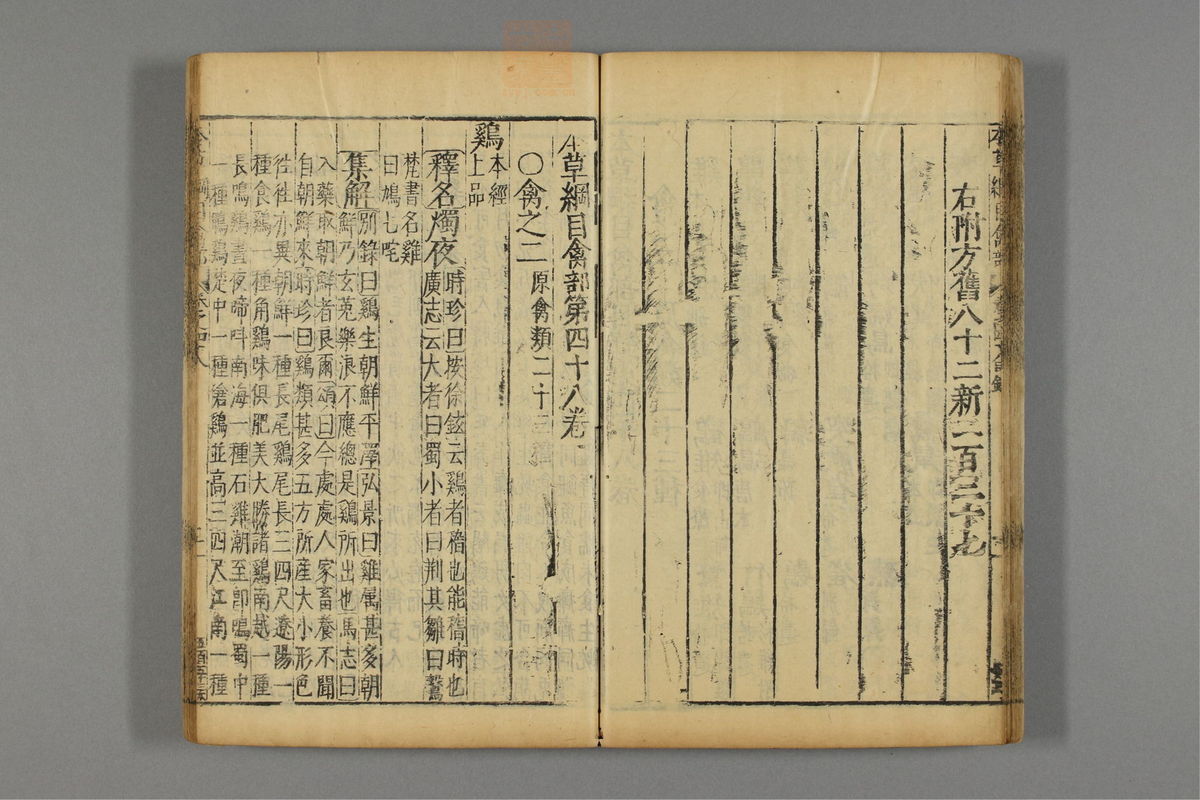 右附方舊八十二新二百三十九
本草綱目禽部第四十八卷
○禽之二原禽類二十三種
鷄本經上品
釋名燭夜時珍曰按徐鉉云鷄者稽也能稽時也
廣志云大者曰蜀小者曰荆其雛曰鷇
梵書名雞
曰鳩七咤
集解别錄曰鷄生朝鮮平澤弘景曰雞属甚多朝
鮮乃玄菟樂浪不應總是鷄所出也馬志曰
入藥取朝鮮者良爾頌曰今處處人家畜養不聞
自朝鮮來時珍曰鷄類甚多五方所産大小形色
徃徃亦異朝鮮一種長尾鷄尾長三四尺遼陽一
種食鷄一種角鷄味俱肥美大勝諸鷄南越一種
長鳴鷄晝夜啼叫南海一種石雞潮至卽鳴蜀中
一種鶤鷄楚中一種傖鷄並高三四尺江南一種